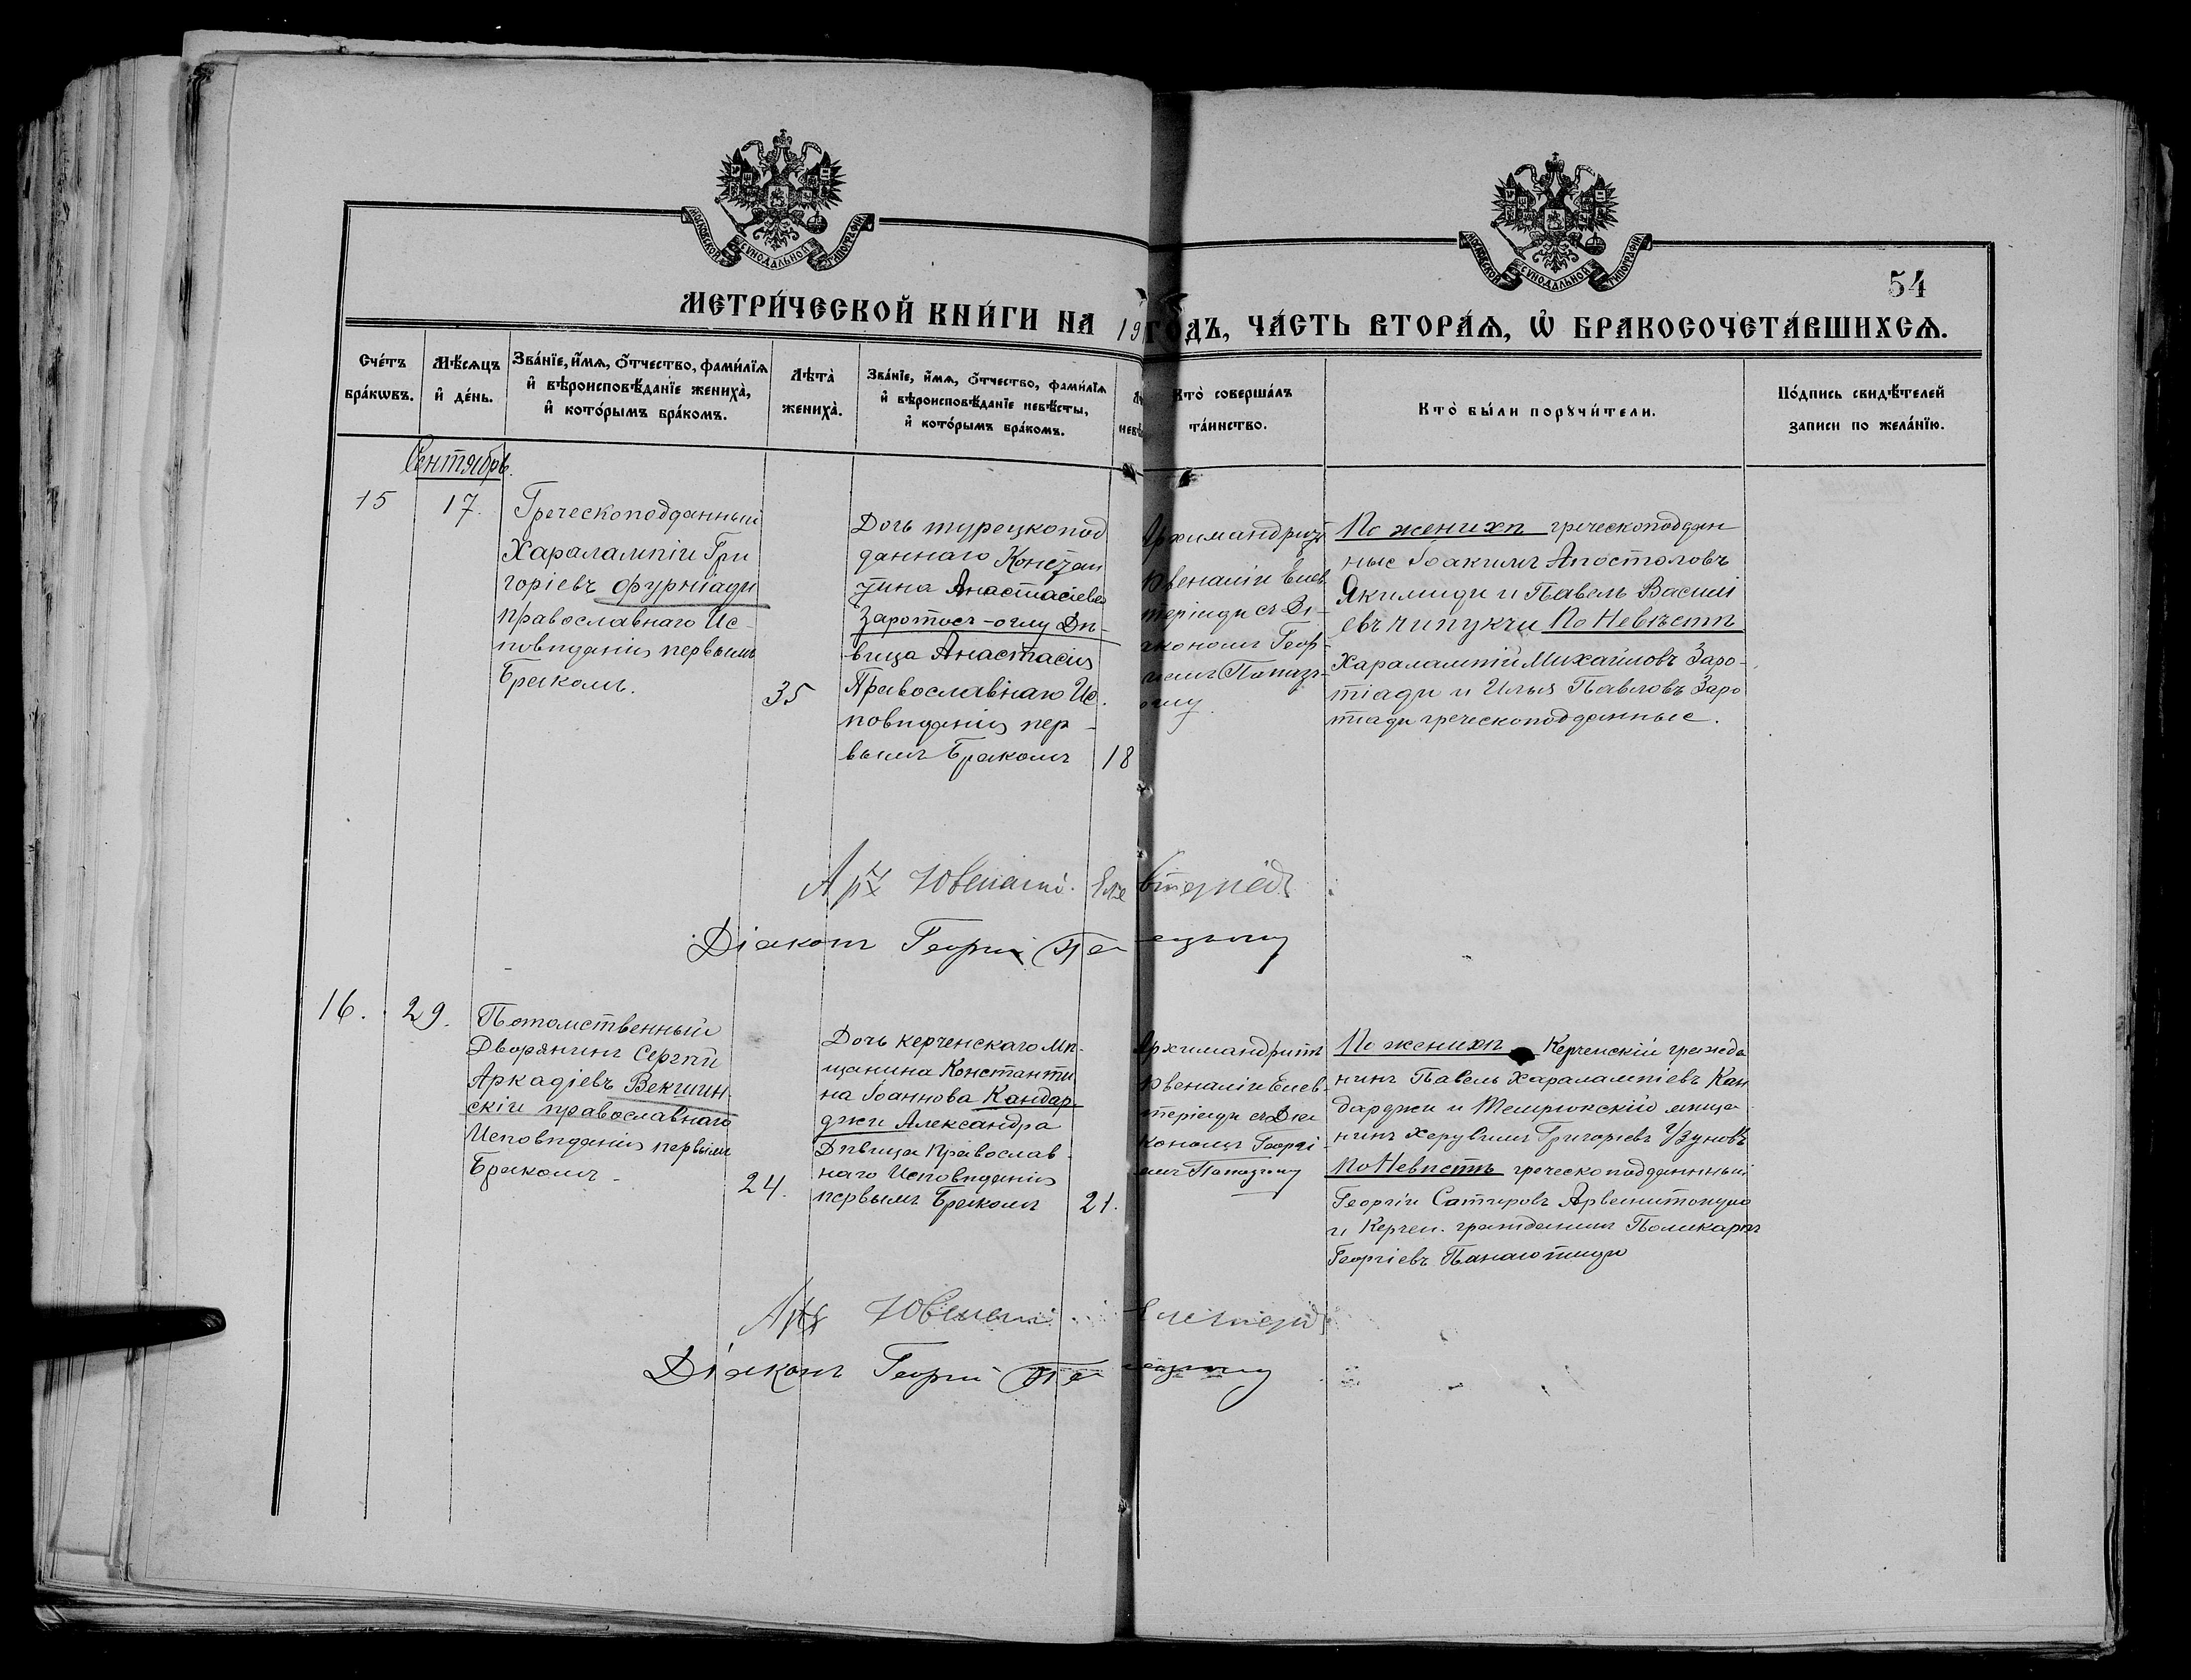 МОСКОВСКОЙ СѴНОДАЛЬНОЙ ТИПОГРАФІИ
МОСКОВСКОЙ СѴНОДАЛЬНОЙ ТИПОГРАФІИ
54
МЕТРИ́ЧЕСКОЙ КНИ́ГИ НА 19 ГО́ДЪ, ЧА́СТЬ ВТОРА́Ѧ, Ѡ҆ БРАКОСОЧЕТА́ВШИХСѦ.
Сче́тъ
бра́кѡвъ.
Мѣ́сѧцъ
и҆ де́нь.
Зва́нїе, и҆́мѧ, ѻ҆́тчество, фами́лїѧ
и҆ вѣроисповѣ́данїе жениха̀,
и҆ кото́рымъ бра́комъ.
Лѣ́та̀
жениха̀.
Зва́нїе, и҆́мѧ, ѻ҆́тчество, фами́лїѧ
и҆ вѣроисповѣ́данїе невѣ́сты,
и҆ кото́рымъ бра́комъ.
Кто̀ соверша́лъ
та́инство.
Кто̀ бы́ли порꙋчи́тели.
По́дпись свидѣ́телей
записи по жела́нїю.
Сентябрь.
15
17.
Греческоподданный
Харалампій Гри
горіевъ Фурніади
православнаго Ис-
повѣданія первымъ
Бракомъ.
35
Дочь турецкопод
даннаго Констан
тина Анастасіева
Заротосъ-оглу Дѣ-
вица Анастасія
Православнаго Ис.
повѣданія пер-
вымъ Бракомъ
18
Архимандритъ
Ювеналій Елев
теріади съ Ді-
акономъ Геор-
гіемъ Папазъ-
оглу.
По женихѣ греческоподдан
ные Іоакимъ Апостоловъ
Якимиди и Павелъ Василі
евъ Чипукчи По Невѣстѣ
Харалампій Михайловъ Заро-
тіади и Илья Павловъ Заро
тіади греческоподданные.
Арх Ювеналі. Елевтеріад
Діаконъ Георгій Папазоглу
16.
29.
Потомственный
Дворянинъ Сергѣй
Аркадіевъ Векшин
скій православнаго
Исповѣданія первымъ
Бракомъ
24.
Дочь керченскаго Мѣ-
щанина Константи
на Іоаннова Кандар
джи Александра
Дѣвица Православ-
наго Исповѣданія
первымъ Бракомъ
21.
Архимандритъ
Ювеналій Елев-
теріади съ Діа
кономъ Георгі-
емъ Папазоглу
По женихѣ Керченскій гражда
нинъ Павелъ Харалампіевъ Кан
дарджи и Темрюкскій мѣща
нинъ Херувимъ Григорьевъ Узуновъ
По Невѣстѣ греческоподданный
Георгій Сатировъ
и Керчен. гражданинъ Поликарпъ
Георгіевъ Панаіотиди
Арх Ювеналі Елевтеріад
Діаконъ Георгій Папазоглу